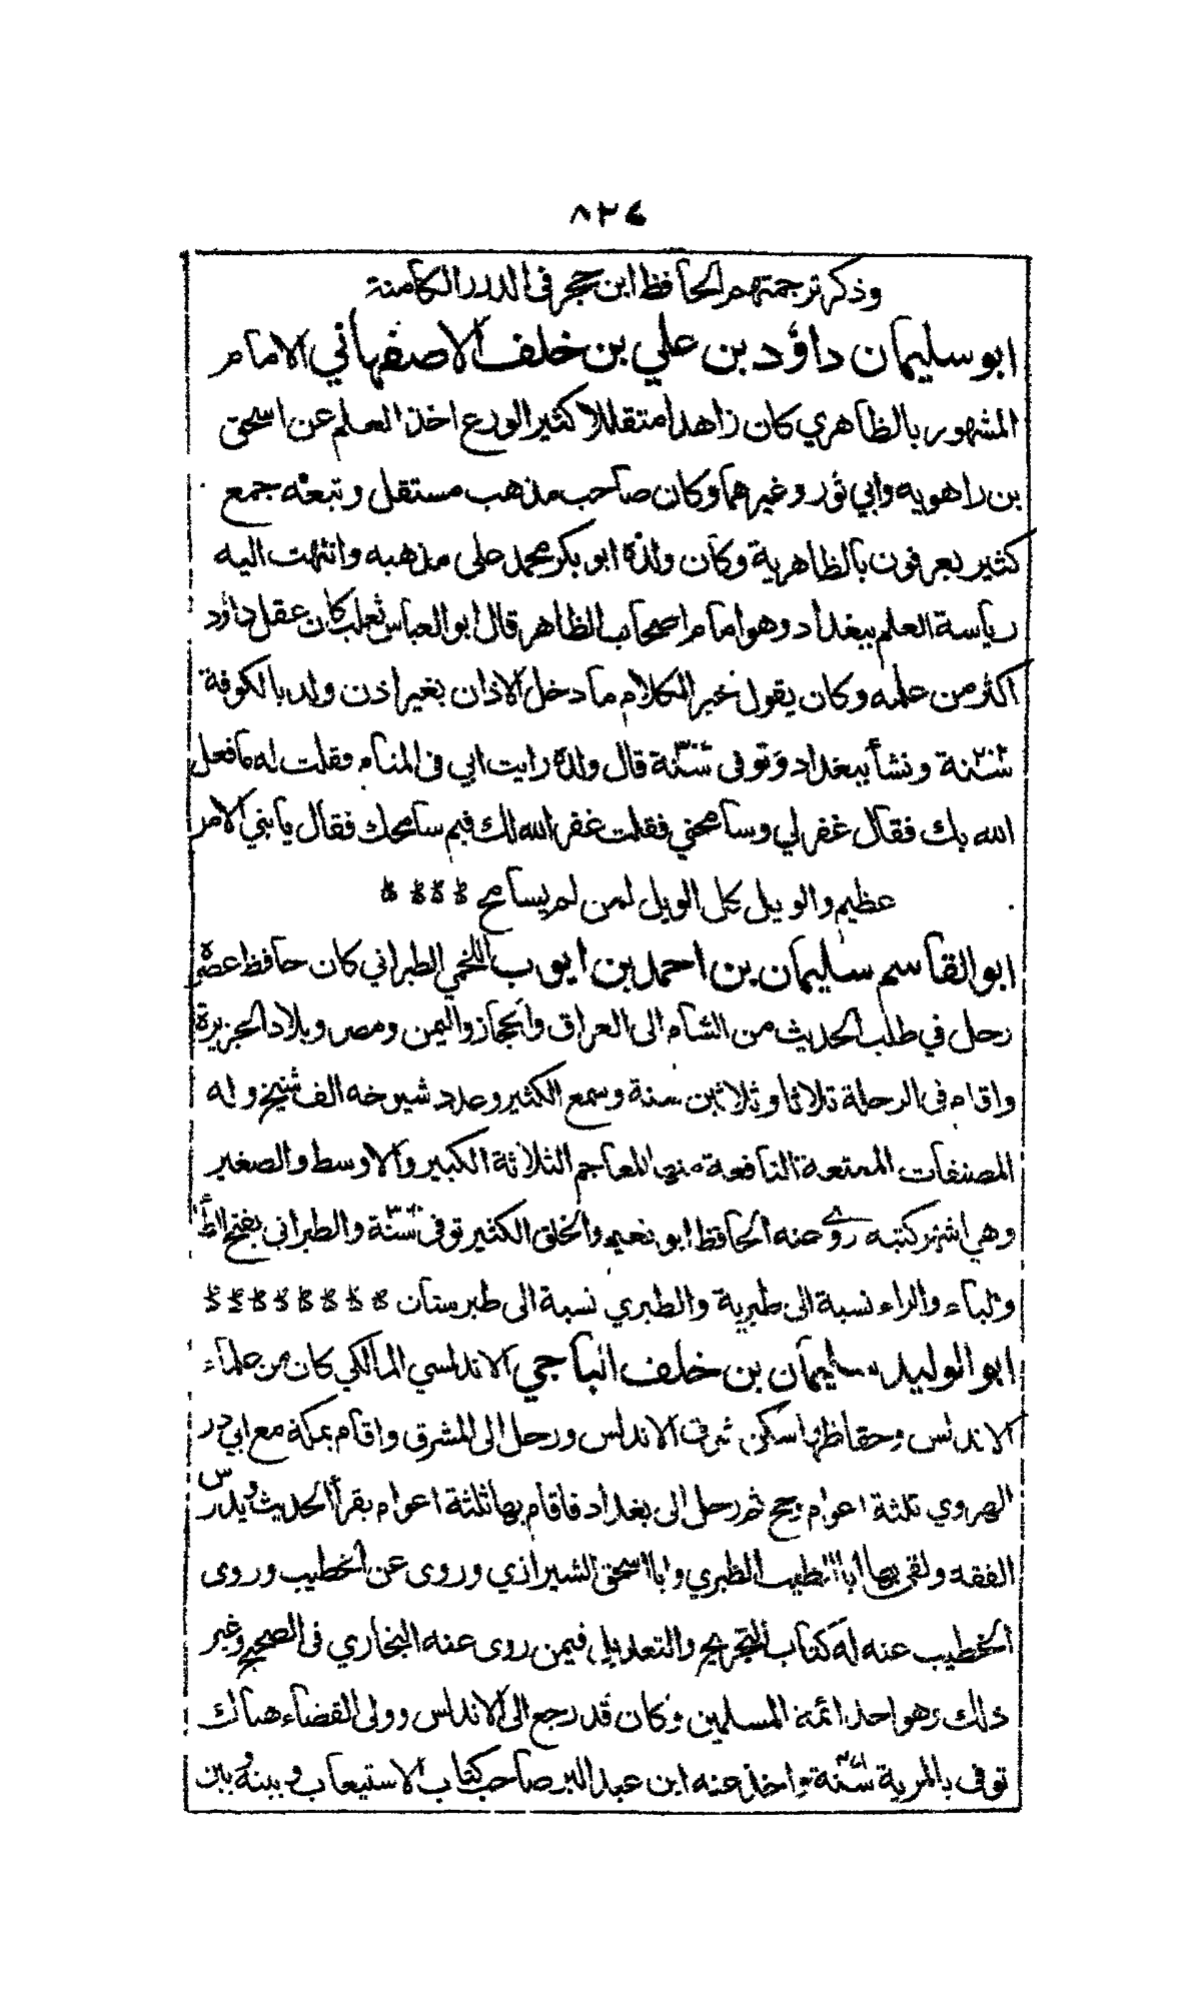 ٨٢٤
وذكر ترجمتهم الحافظ ابن حجر فى الدرر الكامنة
ابو سليمان داؤد بن علي بن خلف الاصفهاني الامام
المشهور بالظاهري كان زاهدا متقللا كثير الورع اخذ العلم عن اسحق
بن راهويه وابي ثور وغيرهما وكان صاحب مذهب مستقل وتبعه جمع
كثير يعرفون بالظاهرية وكان ولده ابو بكر محمد على مذهبه وانتهت اليه
رياسة العلم ببغداد وهو امام اصحاب الظاهر قال ابو العباس ثعلب كان عقل داؤد
اكثر من علمه وكان يقول خير الكلام ما دخل الاذان بغير اذن ولد بالكوفة
سنة ونشأ ببغداد وتوفى سنة قال ولده رايت ابي فى المنام فقلت له ما فعل
الله بك فقال غفر لي وسامحني فقلت غفر الله لك فبم سامحك فقال يا بني الامر
عظيم والويل كل الويل لمن لم يسامح
ابو القاسم سليمان بن احمد بن ايوب اللخمي الطبراني كان حافظ عصره
رحل في طلب الحديث من الشام الى العراق والحجاز واليمن ومصر وبلاد الجزيرة
واقام فى الرحلة ثلاثا وثلاثين سنة وسمع الكثير وعدد شيوخه الف شيخ وله
المصنفات الممتعة النافعة منها المعاجم الثلاثة الكبير والاوسط والصغير
وهي اشهر كتبه روے عنه الحافظ ابو نعيم والخلق الكثير توفى سنة والطبرانى بفتح الطاء
والباء والراء نسبة الى طبرية والطبري نسبة الى طبرستان
ابو الوليد سليمان بن خلف الباجي الاندلسي المالكي كان من علماء
الاندلس وحفاظها سكن شرق الاندلس ورحل الى المشرق واقام بمكة مع ابي ذر
الهروي ثلثة اعوام يحج ثم رحل الى بغداد فاقام بها ثلثة اعوام يقرأ الحديث ويدرس
الفقه ولقى بها ابا الطيب الطبري وابا اسحق الشيرازي وروى عن الخطيب وروى
الخطيب عنه له كتاب التجريح والتعديل فيمن روى عنه البخاري فى الصحيح وغير
ذلك وهو احد ائمة المسلمين وكان قد رجع الى الاندلس وولى القضاء هناك
توفى بالمرية سنة واخذ عنه ابن عبد البر صاحب كتاب الاستيعاب وبينه وبين